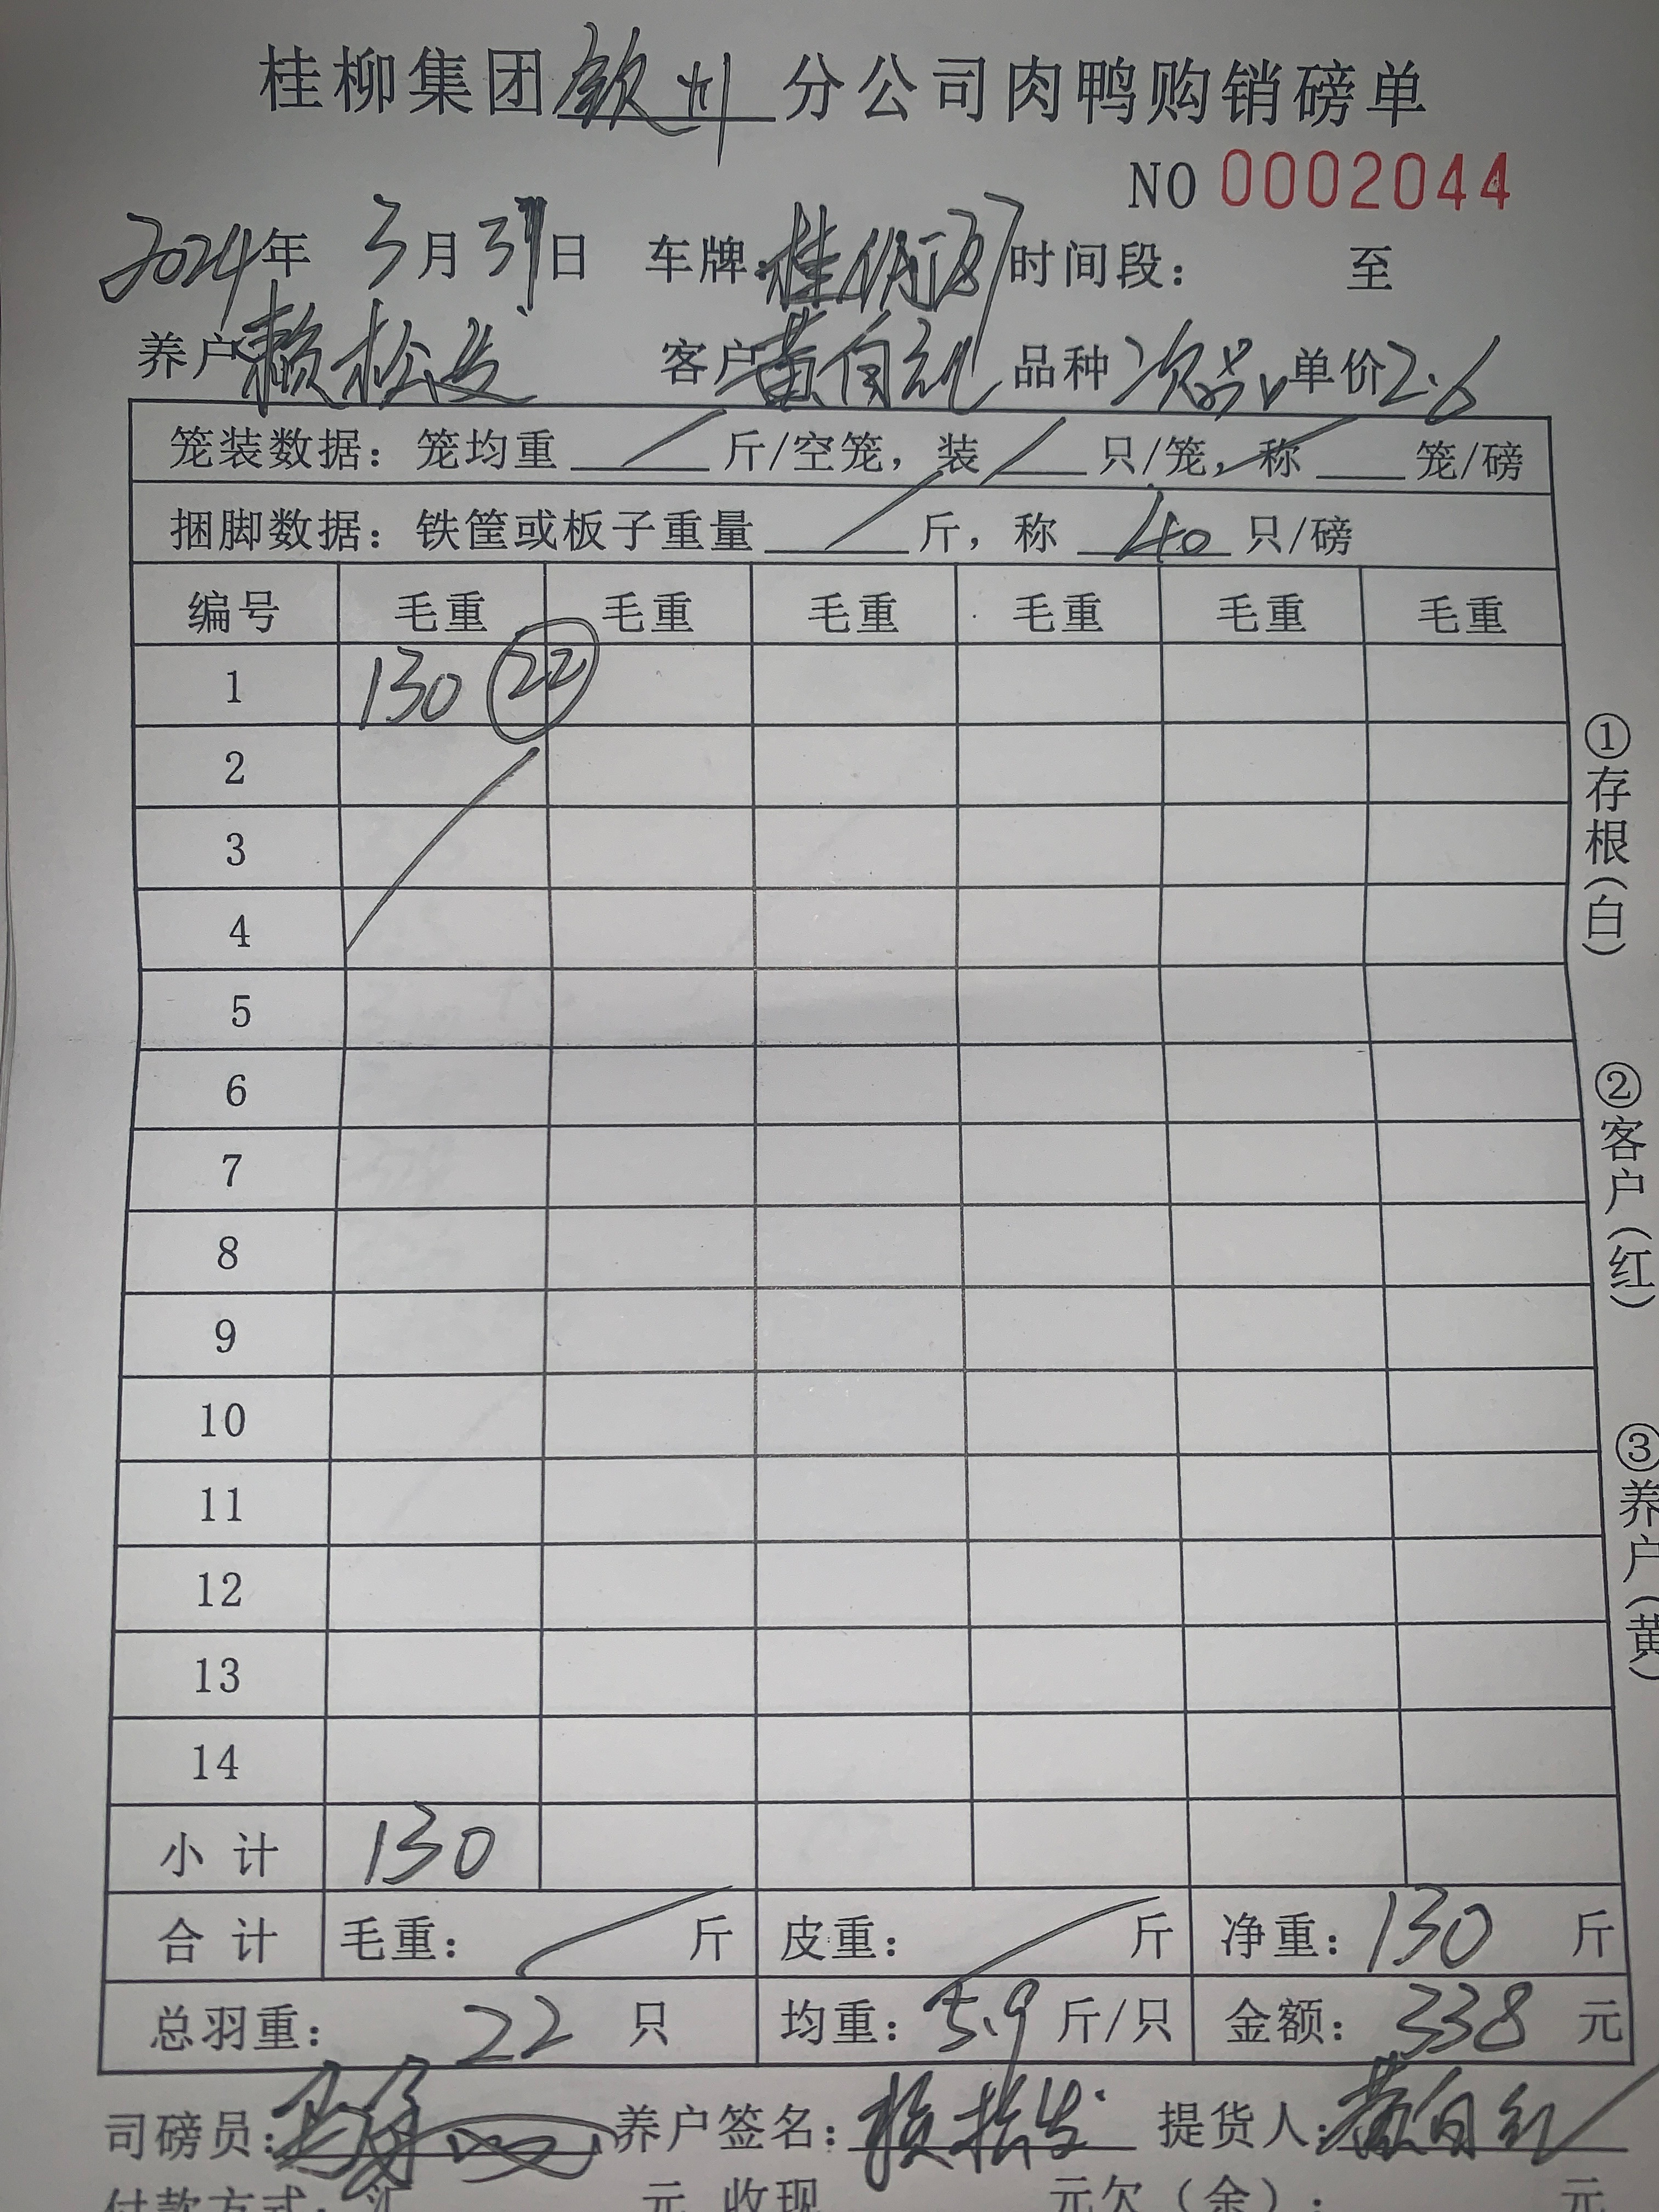 桂柳集团钦州分公司肉鸭购销磅单
NO 0002044
2024年 3月31日 车牌:桂 时间段: 至
养户 赖松发 客户 黄自红 品种 次品 单价2.6
笼装数据:笼均重 / 斤/空笼,装 / 只/笼,称 / 笼/磅
捆脚数据:铁筐或板子重量 / 斤,称 40 只/磅
编号 毛重 毛重 毛重 毛重 毛重 毛重
1 130 22
2
3
4
5
6
7
8
9
10
11
12
13
14
小计 130
合计 毛重: / 斤 皮重: / 斤 净重:130 斤
总羽重: 22 只 均重:5.9 斤/只 金额:338 元
司磅员: 养户签名:赖松发 提货人:黄自红
付款方式: 元 收现 元欠(余): 元
①存根(白)
②客户(红)
③养户(黄)